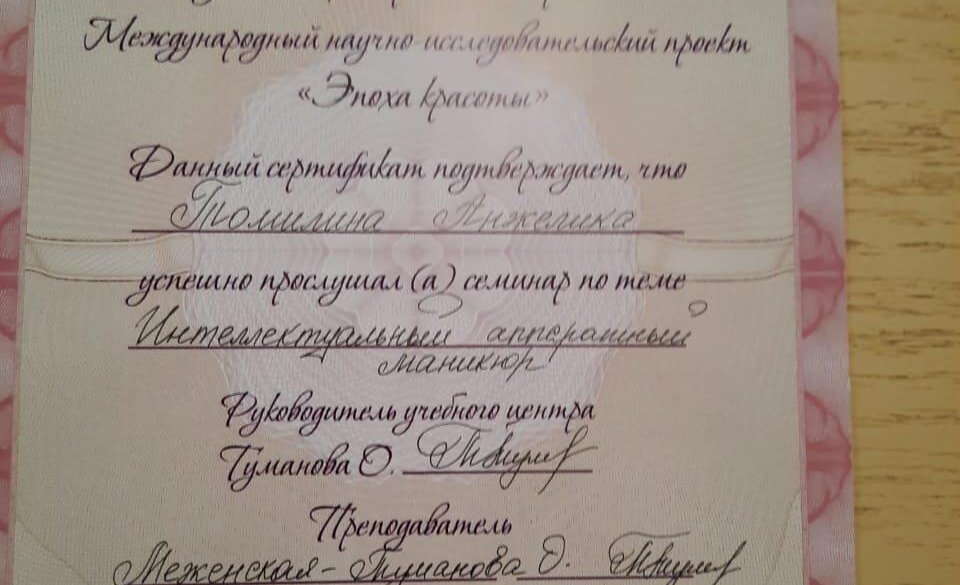 Международный научно-исследовательский проект
«Эпоха красоты»
Данный сертификат подтверждает, что
Томилина Анжелика
успешно прослушал (а) семинар по теме
Интеллектуальный аппаратный
маникюр
Руководитель учебного центра
Туманова О.
Преподаватель
Меженская-Туманова О.